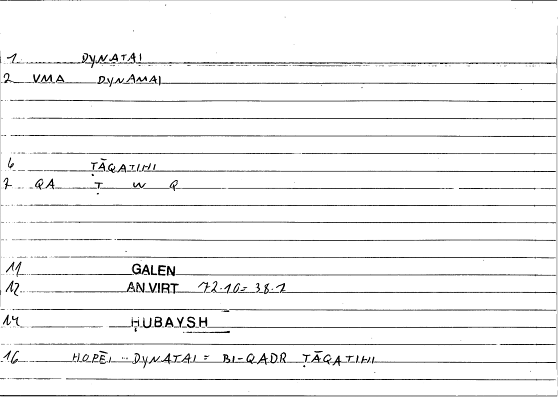 1 DYNATAI
2 VMA DYNAMAI
6 ṬĀQATIHI
7 QA Ṭ W Q
11 GALEN
12 AN.VIRT 72.10=38.1
14 ḤUBAYSH
16 HOPĒI -- DYNATAI = BI-QADR ṬĀQATIHI